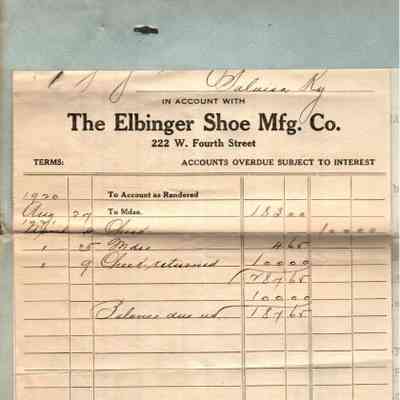 Salvisa Ky
IN ACCOUNT WITH
The Elbinger Shoe Mfg. Co.
222 W. Fourth Street
TERMS: ACCOUNTS OVERDUE SUBJECT TO INTEREST
1920 To Account as Rendered
Aug 27 To Mdse. 183 00
100 00
" 25 Mdse 4 65
" 9 Check returned 100 00
287 65
100 00
Balance due us. 187 65